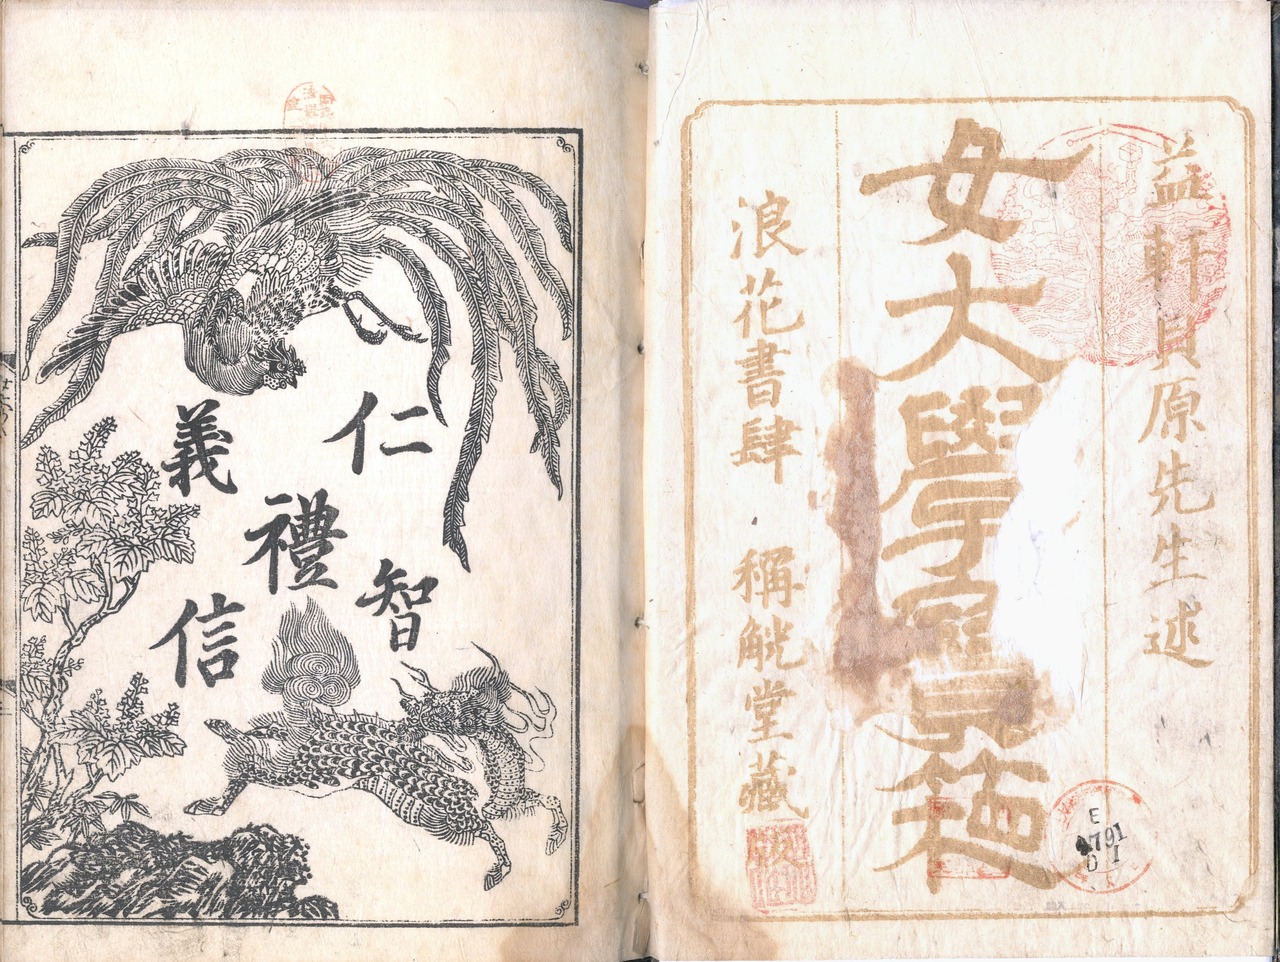 益軒貝原先生述
女大學寶箱
浪花書肆 稱觥堂藏
E
4791
0 1
仁
義
禮
智
信